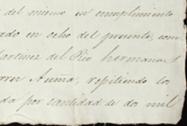 del mismo en cumplimiento
en ocho del presente, com
del Rio hermanas
Anima, repitiendo los
por cantidad de dos mil